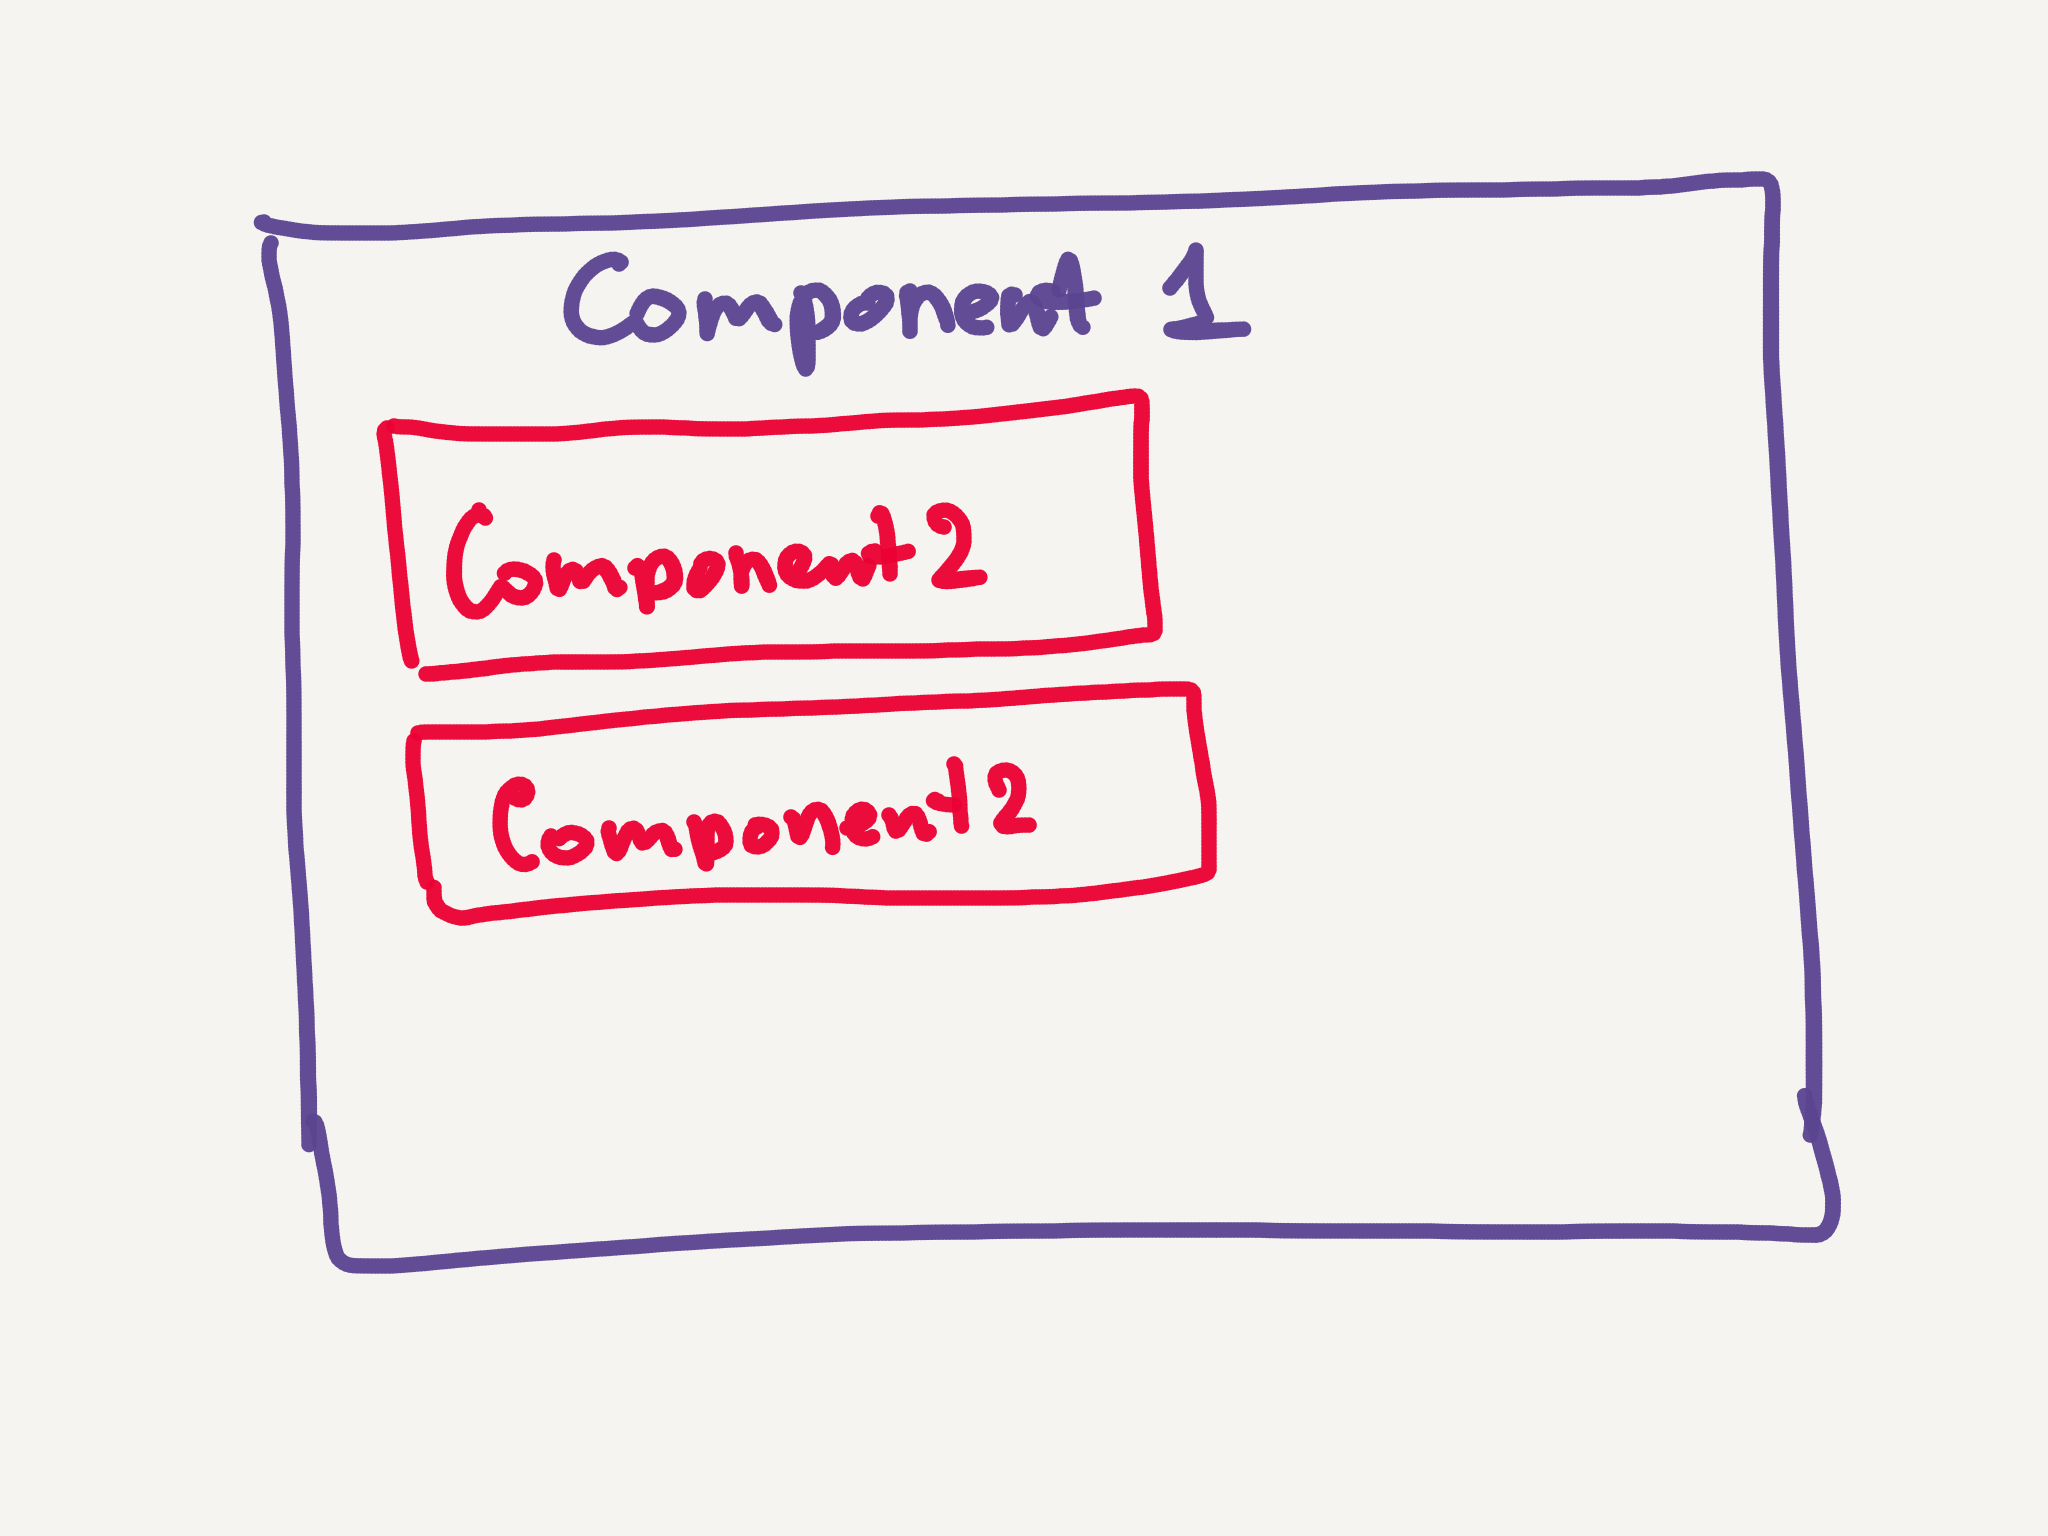 Component 1
Component 2
Component 2